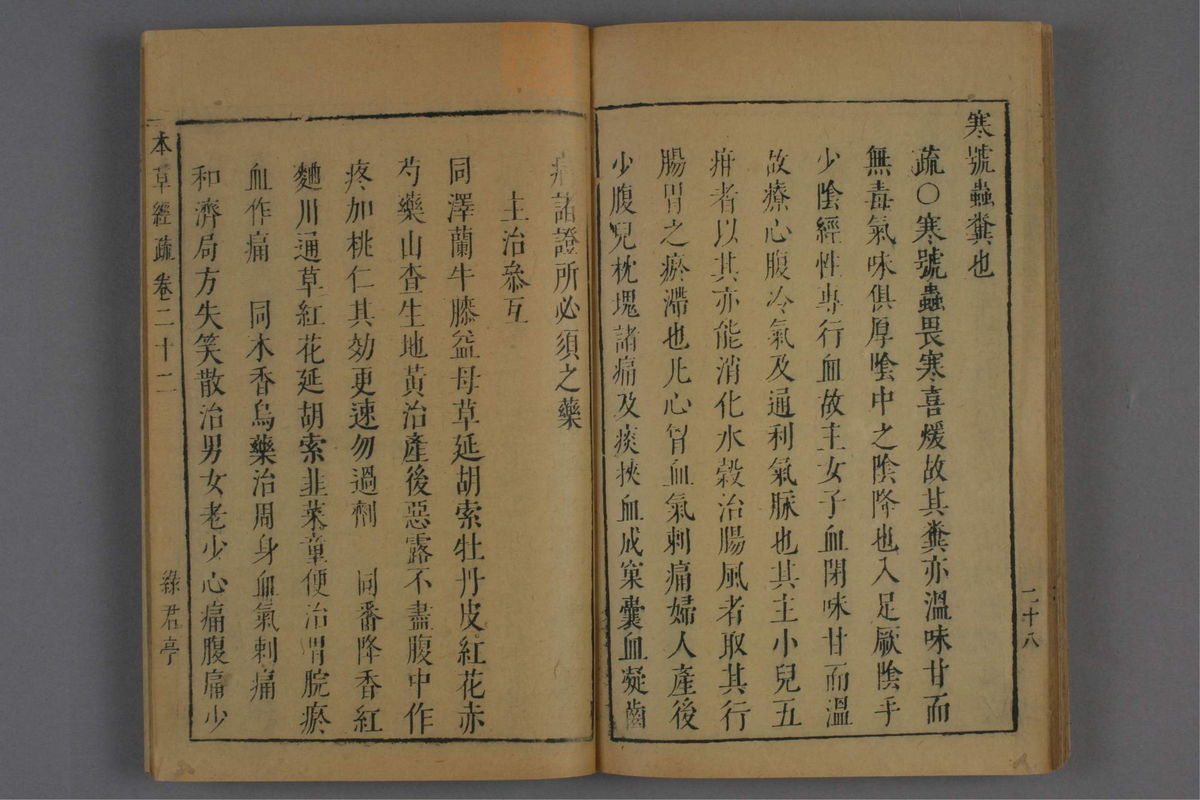 寒號蟲糞也
疏○寒號蟲畏寒喜煖故其糞亦溫味甘而
無毒氣味俱厚陰中之陰降也入足厥陰手
少陰經性專行血故主女子血閉味甘而溫
故療心腹冷氣及通利氣脉也其主小兒五
疳者以其亦能消化水穀治腸風者取其行
腸胃之瘀滯也凡心胷血氣刺痛婦人產後
少腹兒枕塊諸痛及痰挾血成窠囊血凝齒
二十八
痛諸證所必須之藥
主治叅互
同澤蘭牛膝益母草延胡索牡丹皮紅花赤
芍藥山査生地黃治產後惡露不盡腹中作
疼加桃仁其効更速勿過劑　同番降香紅
麯川通草紅花延胡索韭菜童便治胃脘瘀
血作痛　同木香烏藥治周身血氣刺痛
和濟局方失笑散治男女老少心痛腹痛少
本草經疏卷二十二
綠君亭